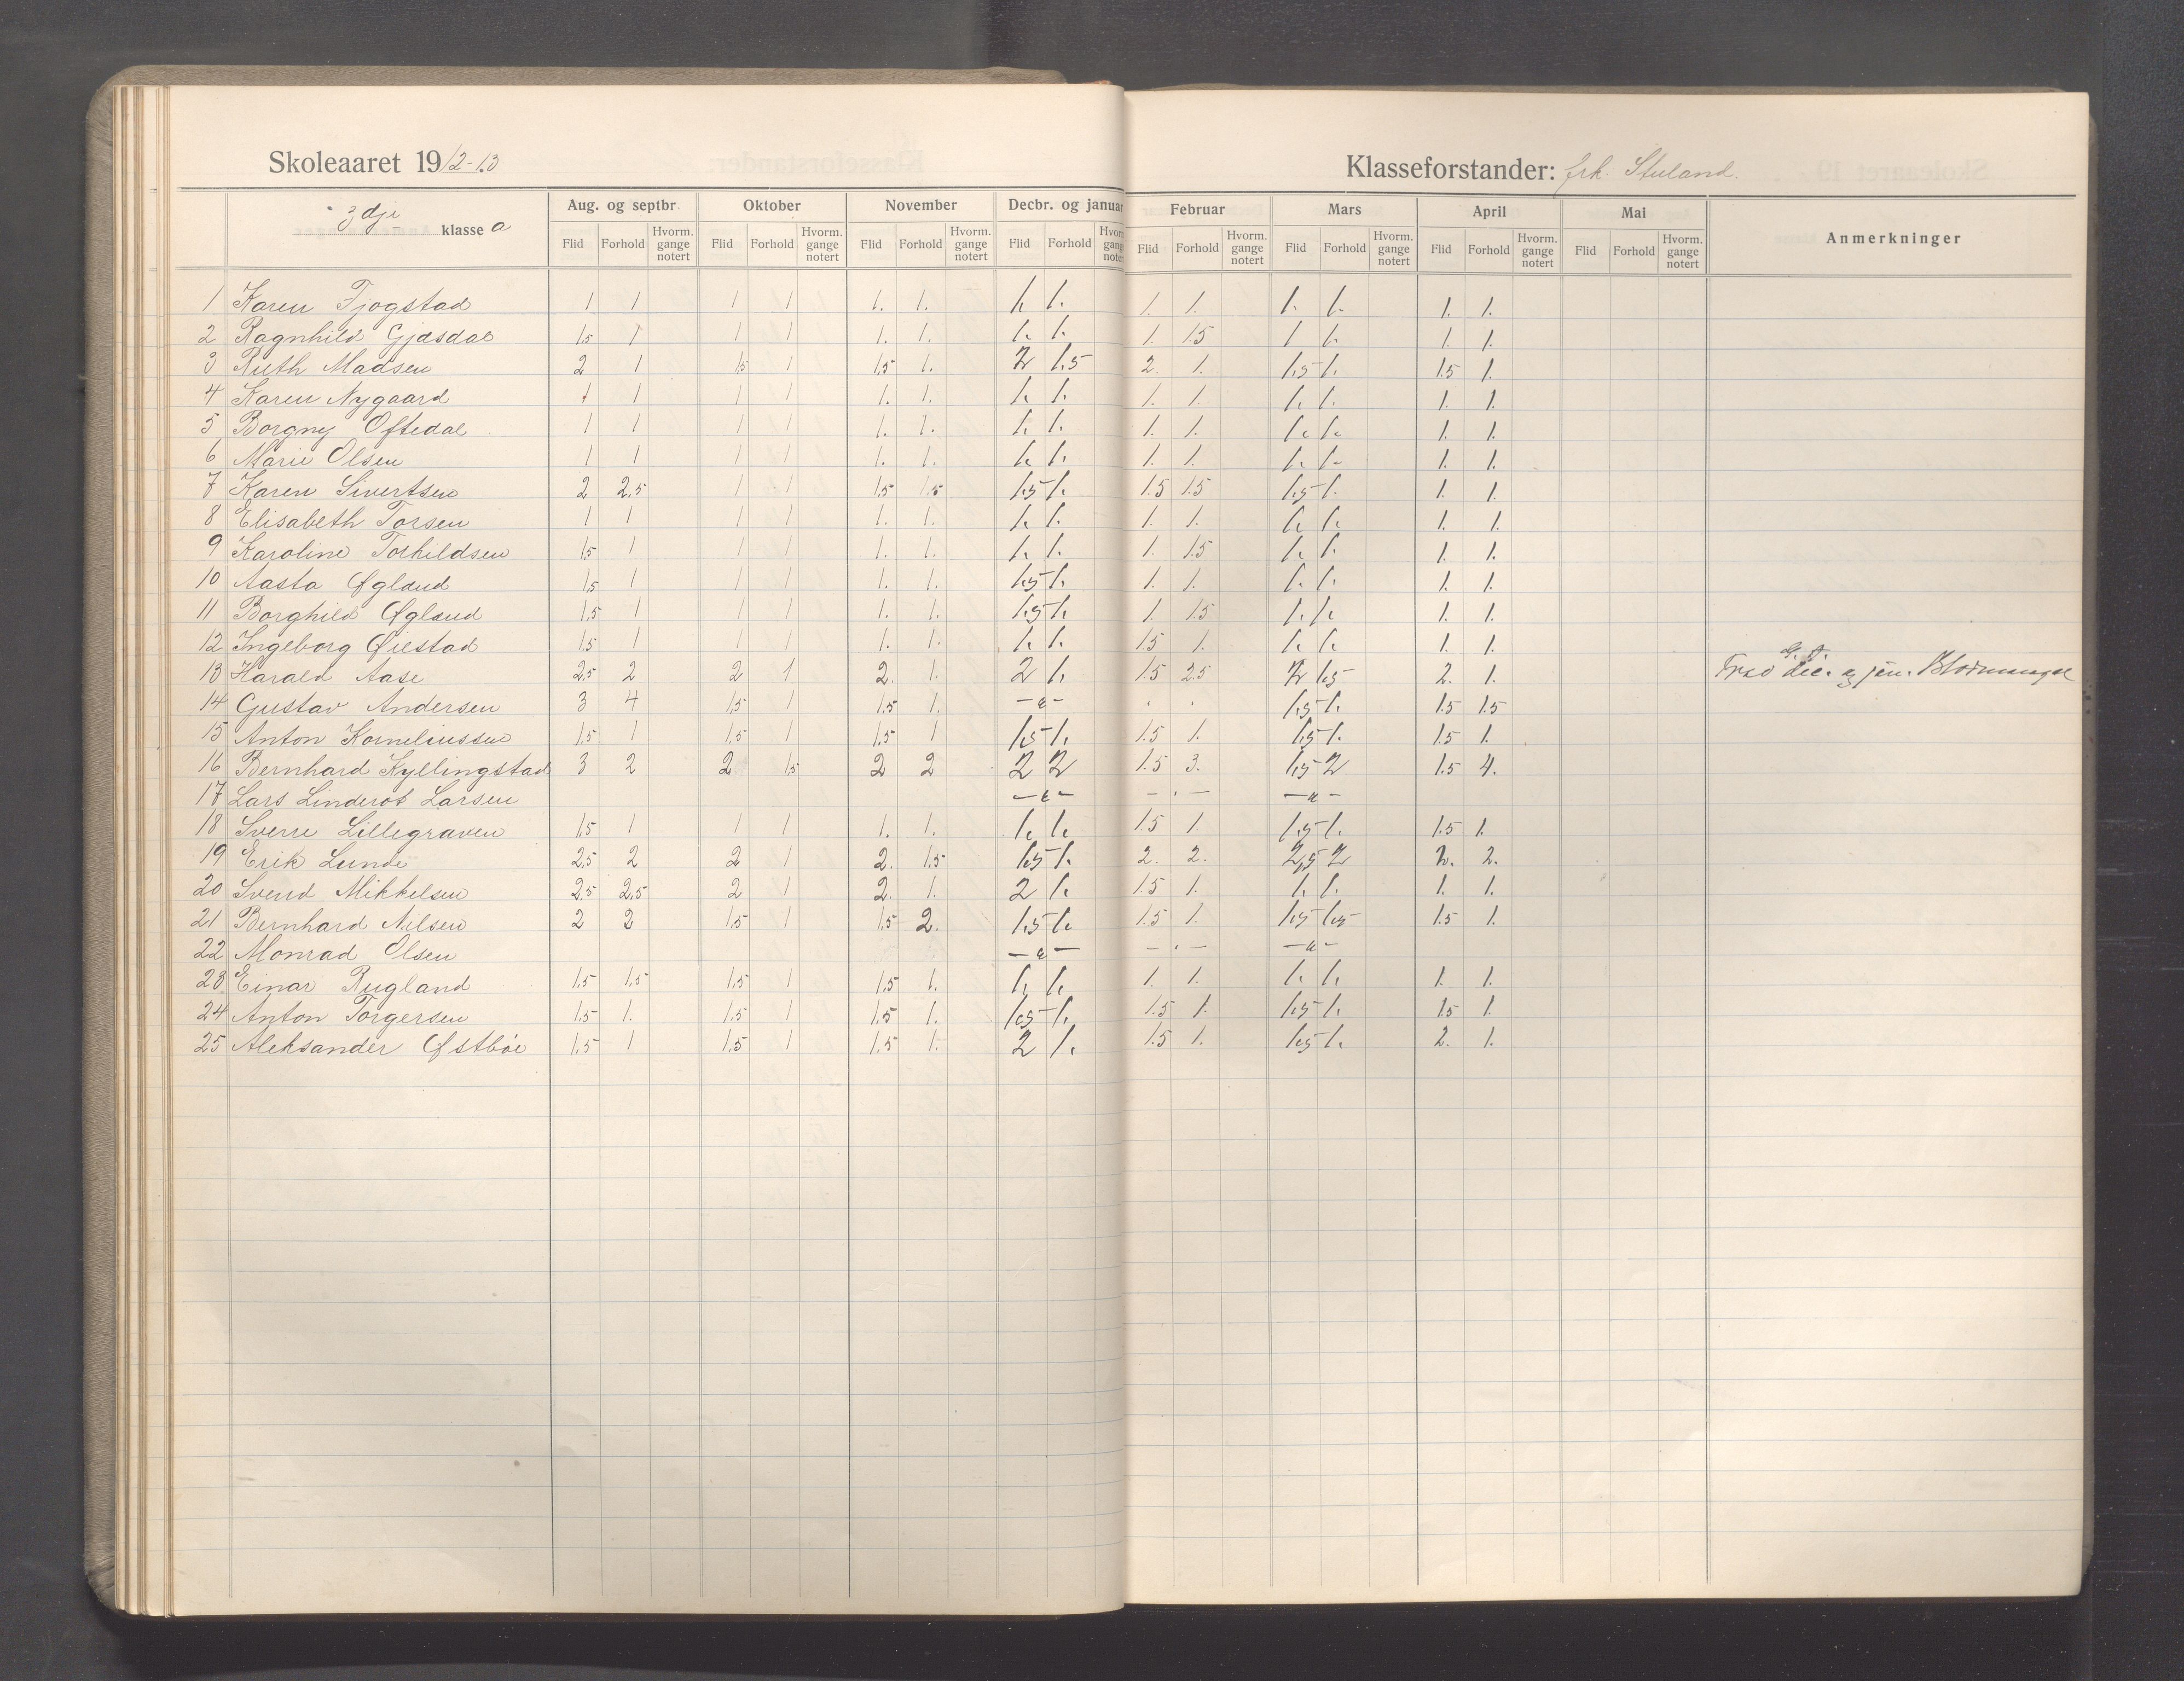 Skoleaaret 1912-13
Klasseforstander: frk. Stuland.
3dje klasse a
Aug. og septbr. Oktober November Decbr. og januar Februar Mars April Mai Anmerkninger
Flid Forhold Hvorm. gange notert Flid Forhold Hvorm. gange notert Flid Forhold Hvorm. gange notert Flid Forhold Flid Forhold Hvorm. gange notert Flid Forhold Hvorm. gange notert Flid Forhold Hvorm. gange notert Flid Forhold Hvorm. gange notert
1 Karen Tjogstad 1 1 1 1 1. 1. 1. 1. 1. 1. 1. 1. 1. 1.
2 Ragnhild Gjdsdal 1,5 1 1 1 1. 1. 1. 1. 1. 1.5 1 1. 1. 1.
3 Ruth Madsen 2 1 1,5 1 1,5 1. 2 1.5 2. 1. 1.5 1. 1.5 1.
4 Karen Nygaard 1 1 1 1 1. 1. 1. 1. 1. 1. 1. 1. 1. 1.
5 Borgny Oftedal 1 1 1 1 1. 1. 1. 1. 1. 1. 1. 1. 1. 1.
6 Marie Olsen 1 1 1 1 1. 1. 1. 1. 1. 1. 1. 1. 1. 1.
7 Karen Sivertsen 2 2,5 1 1 1,5 1.5 1.5 1. 1.5 1.5 1.5 1. 1. 1.
8 Elisabeth Torsen 1 1 1 1 1. 1. 1. 1. 1. 1. 1. 1. 1. 1.
9 Karoline Torkildsen 1,5 1 1 1 1. 1. 1. 1. 1. 1.5 1. 1. 1. 1.
10 Aasta Øgland 1,5 1 1 1 1. 1. 1.5 1. 1. 1. 1. 1. 1. 1.
11 Borghild Øgland 1,5 1 1 1 1. 1. 1.5 1. 1. 1.5 1. 1. 1. 1.
12 Ingeborg Øiestad 1,5 1 1 1 1. 1. 1. 1. 1.5 1. 1. 1. 1. 1.
13 Harald Aase 2,5 2 2 1 2. 1. 2 1. 1.5 2.5 2 1.5 2. 1. Fra dec. og jan. Blodmangel
14 Gustav Andersen 3 4 1,5 1 1,5 1. — " — . . 1.5 1. 1.5 1.5
15 Anton Korneliussen 1,5 1 1,5 1 1,5 1 1.5 1. 1.5 1. 1.5 1. 1.5 1.
16 Bernhard Kyllingstad 3 2 2 1,5 2 2 2 2 1.5 3. 1.5 2 1.5 4.
17 Lars Linderot Larsen — " — — " — — " —
18 Sverre Lillegraven 1,5 1 1 1 1. 1. 1. 1. 1.5 1. 1.5 1. 1.5 1.
19 Erik Lunde 2,5 2 2 1 2. 1.5 1.5 1. 2. 2. 2,5 2 2. 2.
20 Svend Mikkelsen 2,5 2,5 2 1 2. 1. 2 1. 1.5 1. 1. 1. 1. 1.
21 Bernhard Nilsen 2 2 1,5 1 1,5 2. 1.5 1. 1.5 1. 1.5 1.5 1.5 1.
22 Monrad Olsen — " — — " — — " —
23 Einar Rugland 1,5 1,5 1,5 1 1,5 1. 1. 1. 1. 1. 1. 1. 1. 1.
24 Anton Torgersen 1,5 1. 1,5 1 1,5 1. 1.5 1. 1.5 1. 1.5 1. 1.5 1.
25 Aleksander Østbøe 1,5 1 1,5 1 1.5 1. 2 1. 1.5 1. 1.5 1. 2. 1.